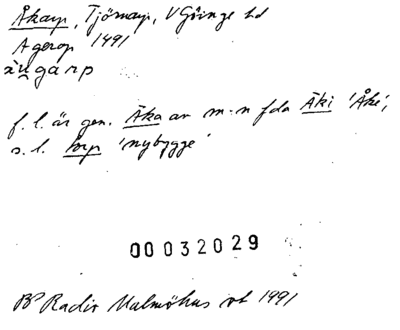 Åkarp, Tjörnarp, V Göinge hd
Agerop 1491
àu̱garp
f.l. är gen. Āka av m-n fda Āki 'Åke',
s.l. þorp 'nybygge'
00032029
BP Radio Malmöhus vt 1991